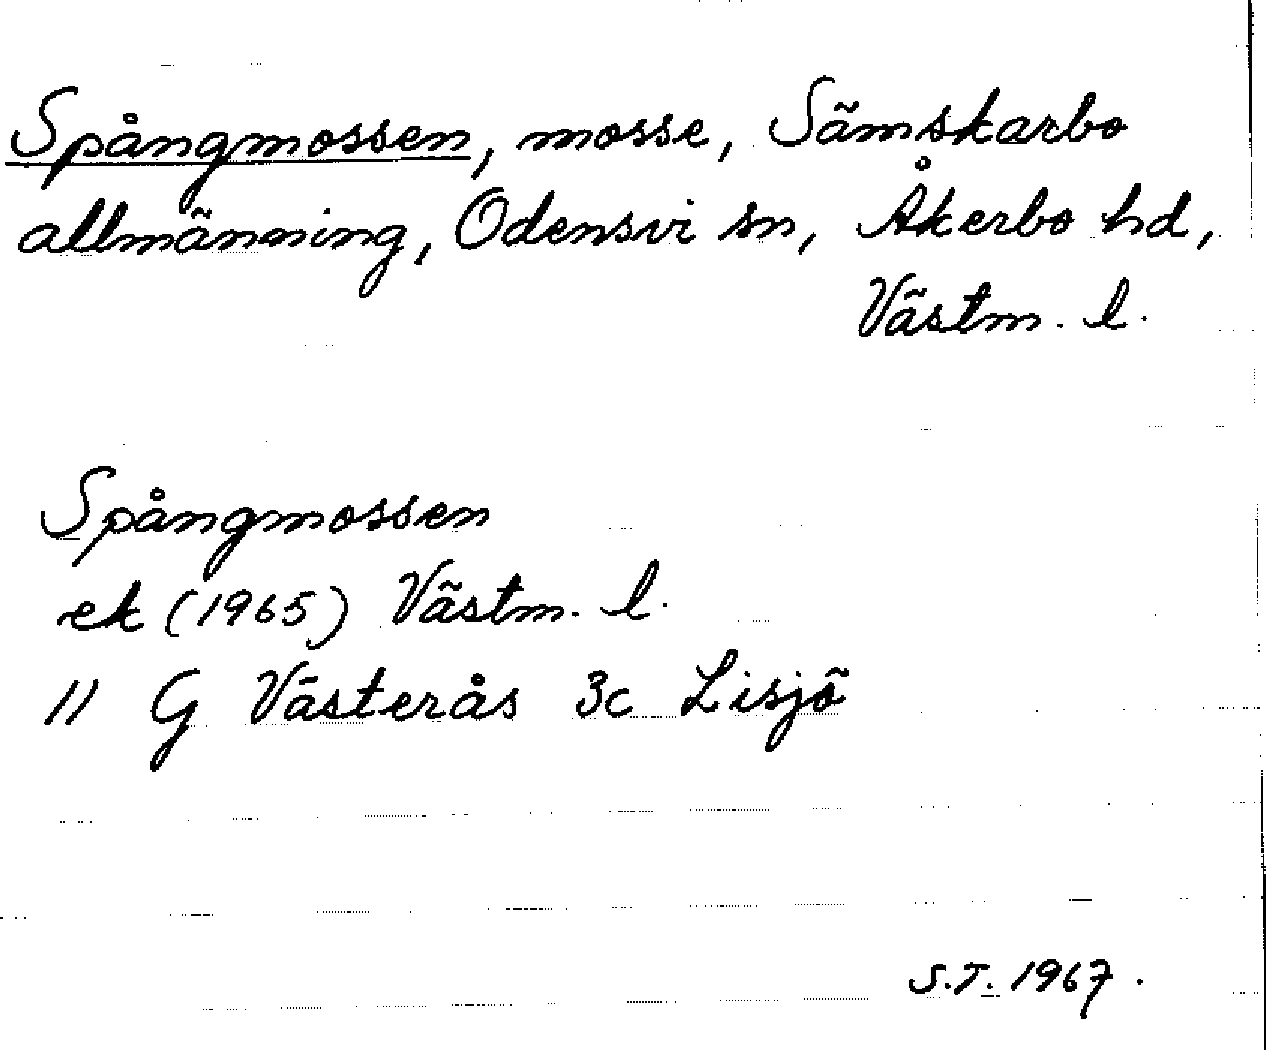 Spångmossen, mosse, Sämskarbo
allmänning, Odensvi sn, Åkerbo hd,
Västm. l.
Spångmossen
ek (1965) Västm. l.
11 G Västerås 3c Lisjö
S.T. 1967.